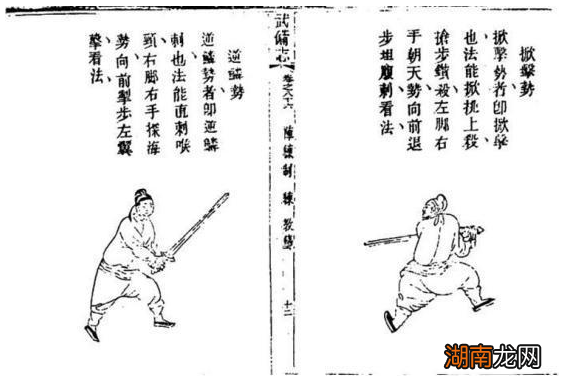 掀擊勢
掀擊勢者即掀擊
也法能掀挑上殺
搶步鑽殺左脚右
手朝天勢向前退
步坦腹刺看法
武備志 卷八十六 陣練制 練 教藝 十二
逆鱗勢
逆鱗勢者即逆鱗
刺也法能直刺喉
頸右脚右手探海
勢向前掣步左翼
擊看法
湖南龙网